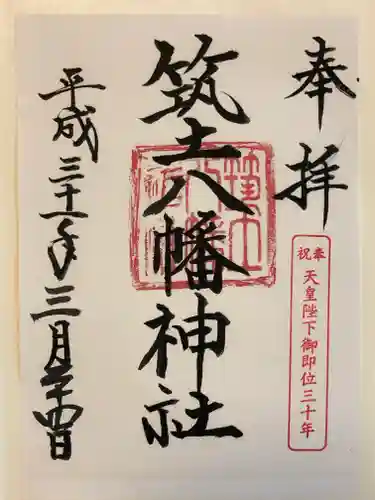 奉拝
奉祝
天皇陛下御即位三十年
筑土八幡神社
平成三十一年三月廿四日